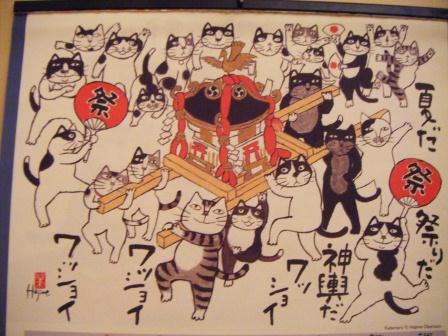 夏だ
祭りだ
神輿だ
ワッショイ
ワッショイ
ワッショイ
祭
祭
Hajime
© Hajime Okamoto